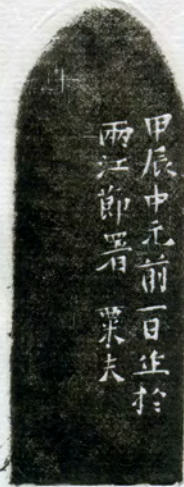 甲辰中元前一日作於
兩江節署 栗夫